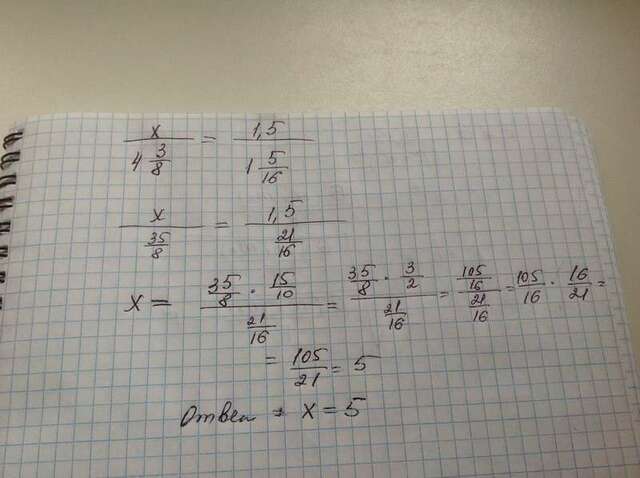 x / 4 3/8 = 1,5 / 1 5/16
x / 35/8 = 1,5 / 21/16
x = 35/8 · 15/10 / 21/16 = 35/8 · 3/2 / 21/16 = 105/16 / 21/16 = 105/16 · 16/21 =
= 105/21 = 5
Ответ : x = 5